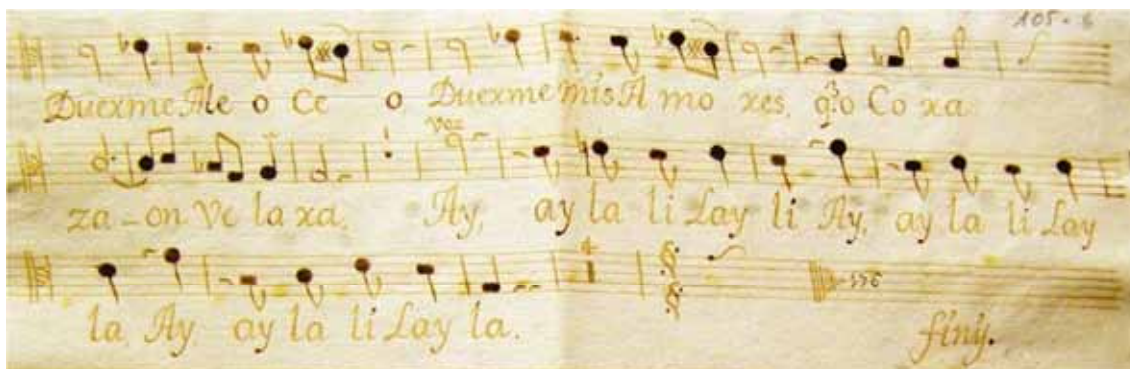 105 - 6
Duexme Ale o Ce o Duexme mis A mo xes, q̃o Co xa
voz
za-on Ve la xa. Ay, ay la li Lay li Ay, ay la li Lay
la, Ay ay la li Lay la. finỹ.